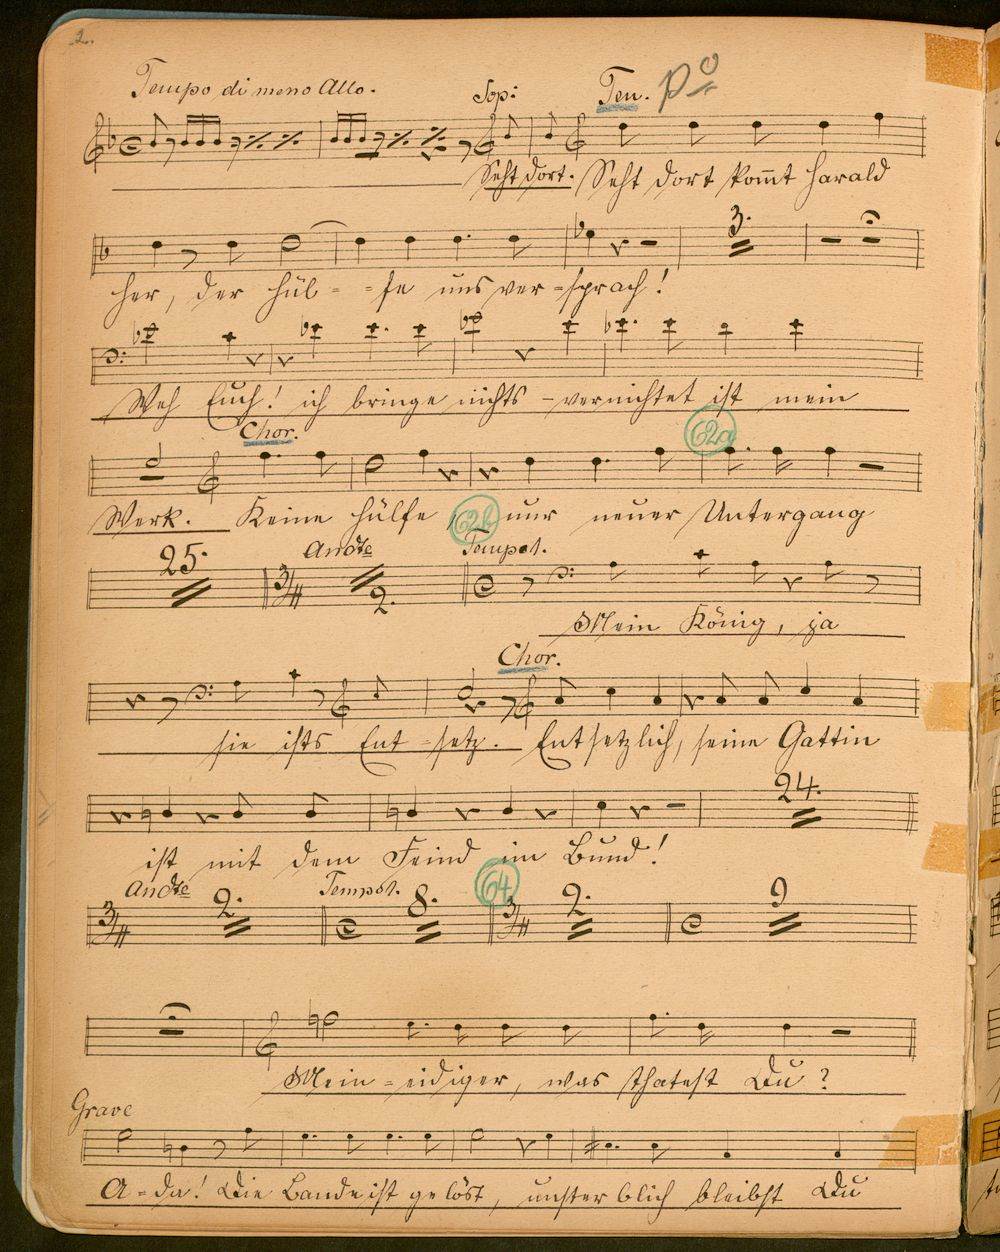 2.
Tempo di meno Allo. Sop: Ten. po
Seht dort. Seht dort kom̅t Harald
3.
her, der Hül - - fe uns ver - sprach!
Weh Euch! ich bringe nichts - vernichtet ist mein
Chor. 62a
Werk. Keine Hülfe, 62b nur neuer Untergang
25. Andte 2. Tempo I.
3/4
Mein König, ja
Chor.
sie ists Ent - setz. Entsetzlich, seine Gattin
24.
ist mit dem Feind im Bund!
Andte Tempo I. 64
3/4 2. 8. 3/4 2. 9
Mein - eidiger, was thatest Du?
Grave
A - da! Die Bande ist gelöst, unsterblich bleibst Du